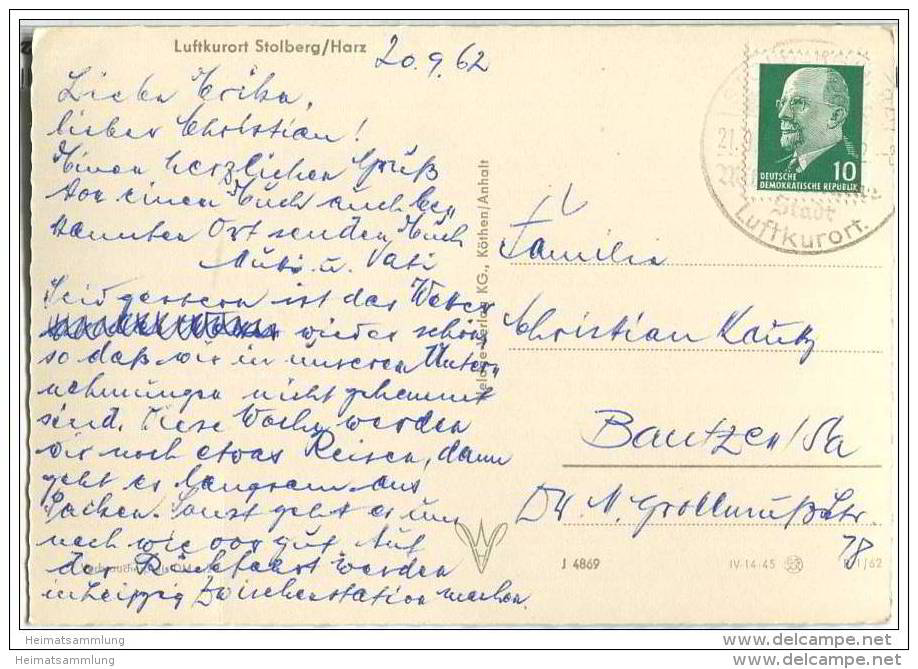 Luftkurort Stolberg/Harz
20.9.62
Liebe Erika,
lieber Christian!
Einen herzlichen Gruß
von einem Euch auch be-
kannten Ort senden Euch
Mutti u. Vati
Seit gestern ist das Wetter
wieder schön,
so daß wir in unseren Unter-
nehmungen nicht gehemmt
sind. Diese Woche werden
wir noch etwas Reisen, dann
geht es langsam ans
Packen. Sonst geht es uns
nach wie vor gut. Auf
der Rückfahrt werden
in Leipzig Zwischenstation machen.
Verlag KG., Köthen/Anhalt
10
DEUTSCHE
DEMOKRATISCHE REPUBLIK
21.
Stadt
Luftkurort.
Familie
Christian Kautz
Bautzen/Sa
Dr.
78
J 4869
IV-14-45
1/62
Heimatsammlung
Heimatsammlung
delcampe.net
delcampe.net